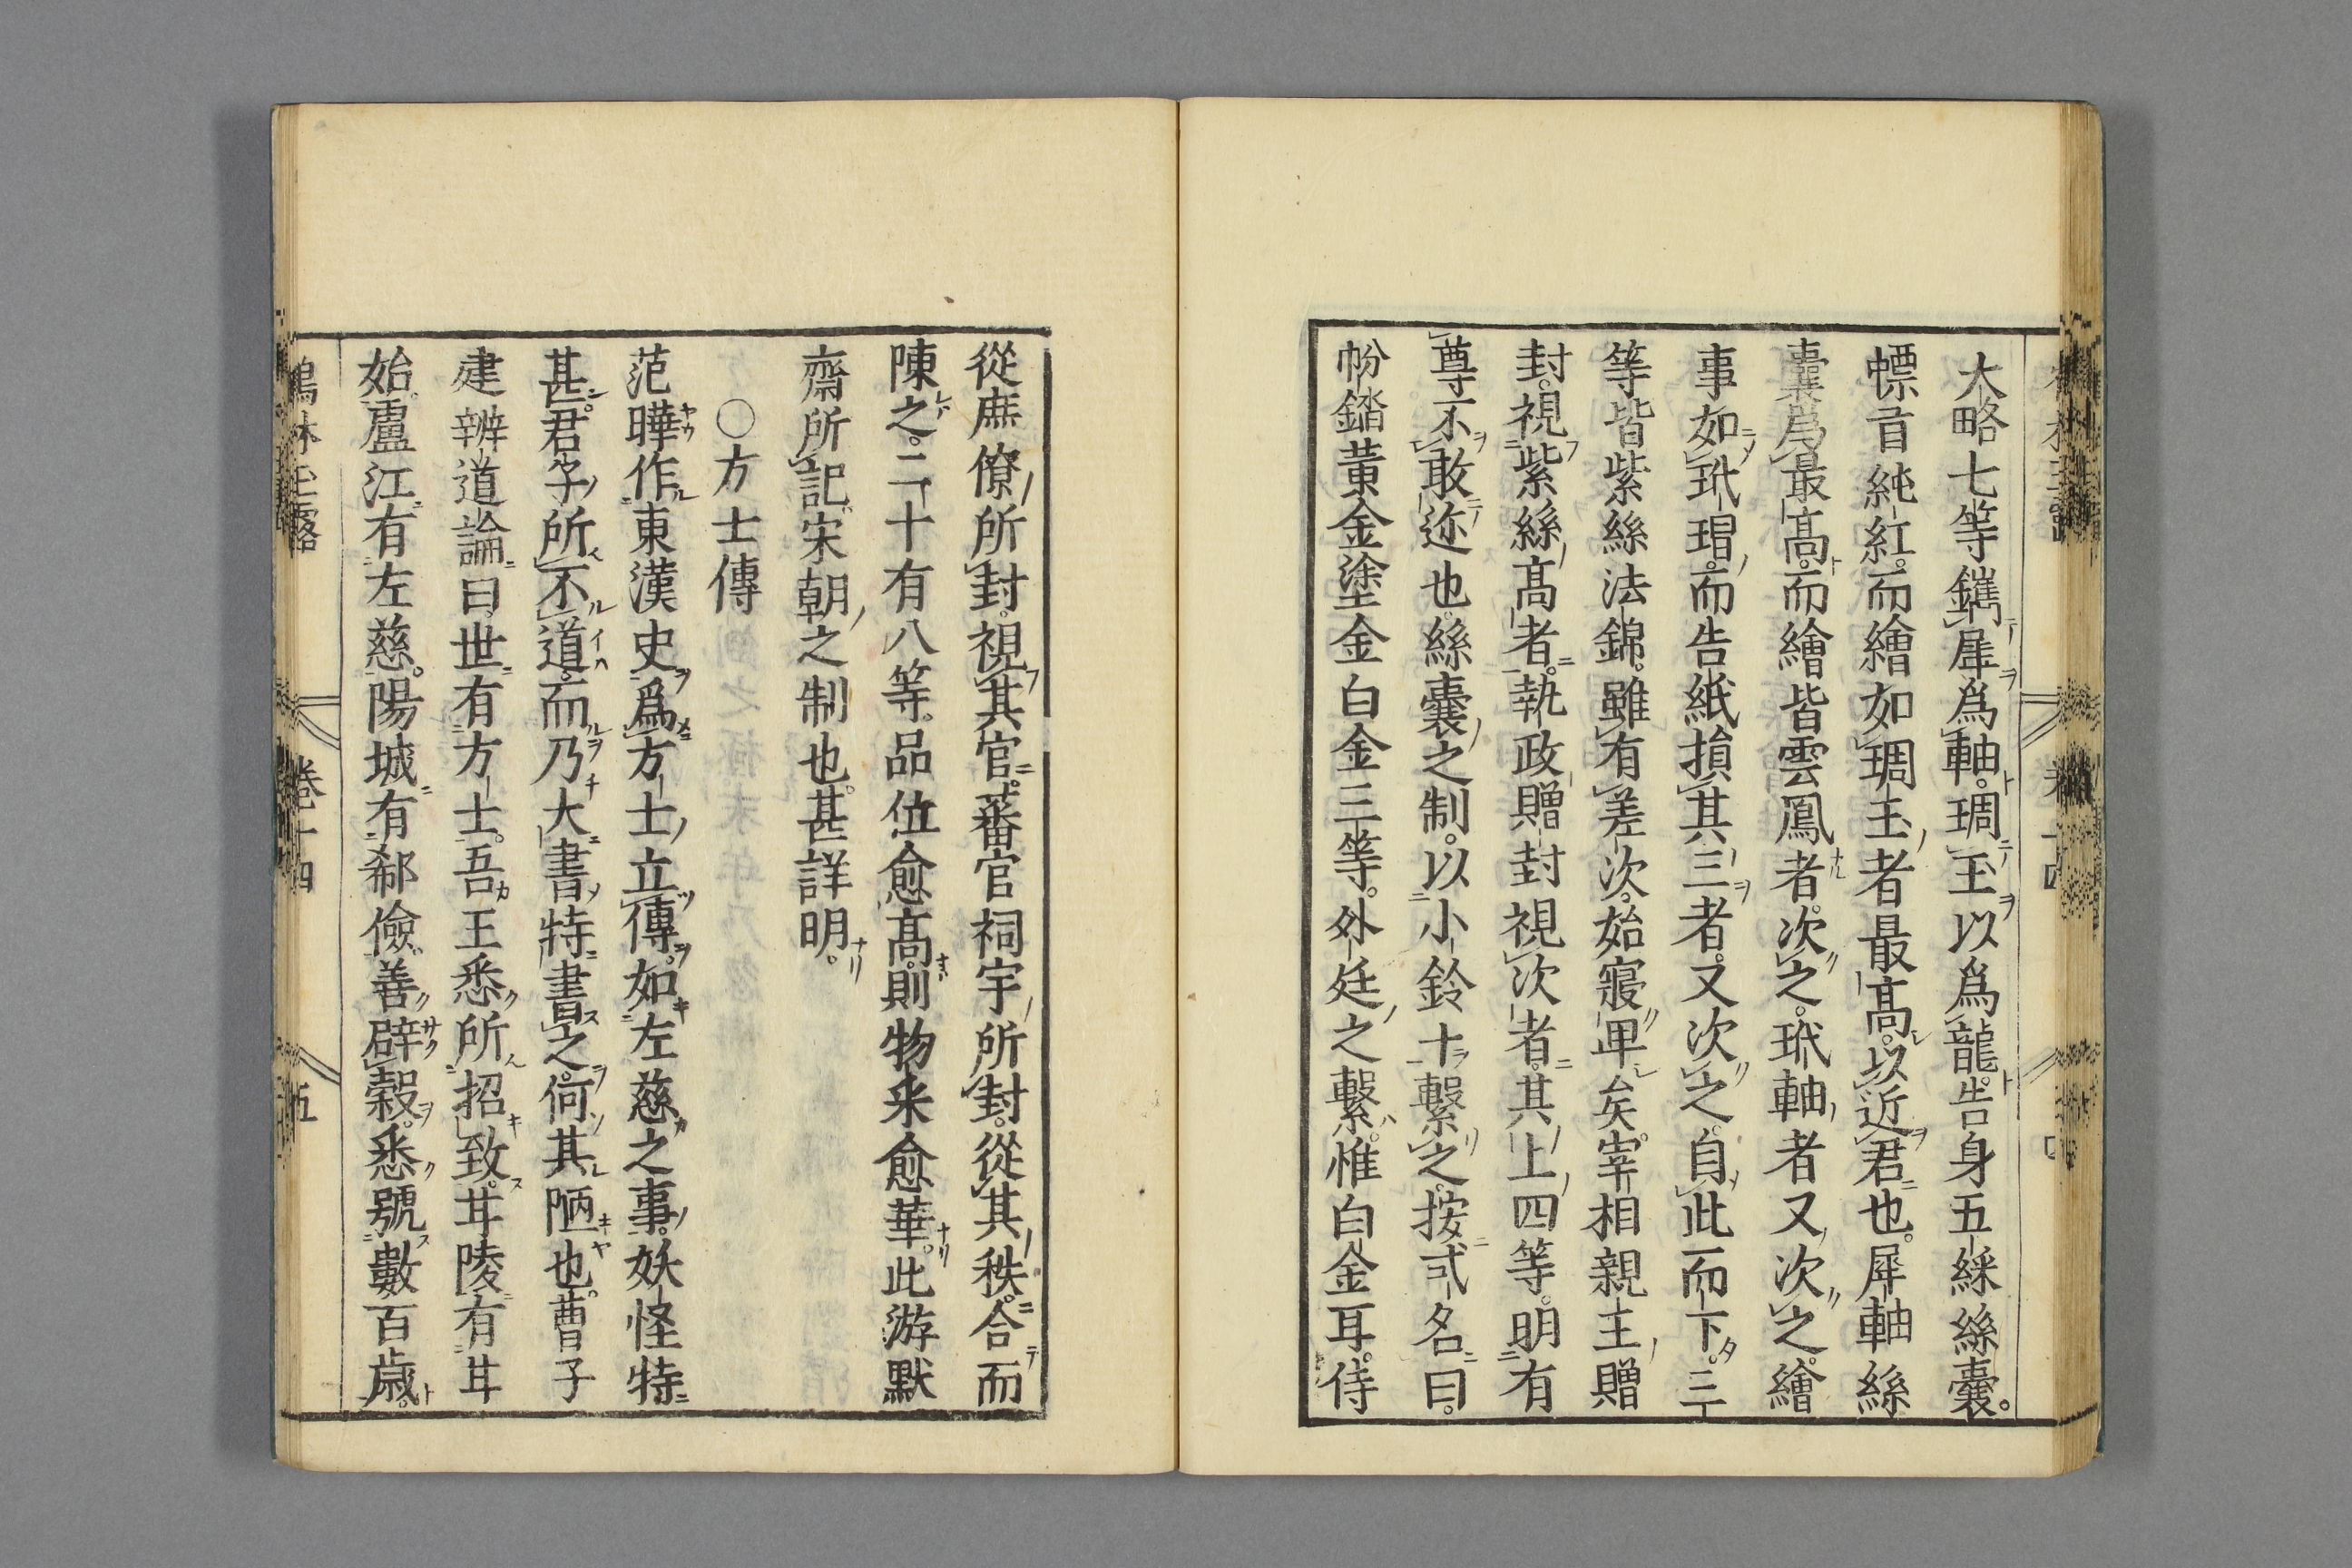 大略七等鐫犀爲軸琱玉以爲龍告身五綵絲囊
幖首純紅而繪如琱玉者最高以近君也犀軸絲
囊爲最高而繪皆雲鳳者次之玳軸者又次之繪
事如玳瑁而告紙損其三者又次之自此而下三
等皆紫絲法錦雖有差次始寢卑矣宰相親王贈
封視紫絲高者執政贈封視次者其上四等明有
尊不敢迩也絲囊之制以小鈴十繫之按式名曰
帉錔黄金塗金白金三等外廷之繫惟白金耳侍
從庶僚所封視其官蕃官祠宇所封從其秩合而
陳之二十有八等品位愈高則物来愈華此游默
齋所記宋朝之制也甚詳明
〇方士傳
范曄作東漢史爲方士立傳如左慈之事妖怪特
甚君子所不道而乃大書特書之何其陋也曹子
建辨道論曰世有方士吾王悉所招致甘陵有甘
始盧江有左慈陽城有郗儉善辟穀悉號數百歳
鶴林玉露 卷十四 五